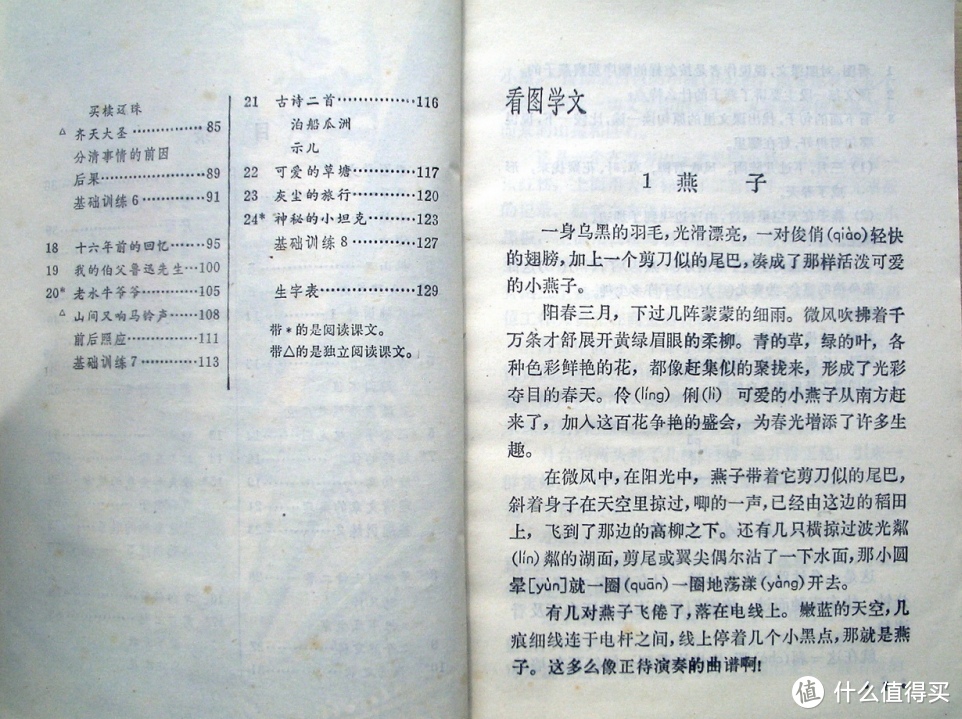 买椟还珠
△ 齐天大圣……………85
分清事情的前因
后果………………89
基础训练6…………91
18 十六年前的回忆……95
19 我的伯父鲁迅先生…100
20* 老水牛爷爷…………105
△ 山间又响马铃声………108
前后照应……………111
基础训练7…………113
21 古诗二首……………116
泊船瓜洲
示儿
22 可爱的草塘…………117
23 灰尘的旅行…………120
24* 神秘的小坦克………123
基础训练8…………127
生字表………………129
带*的是阅读课文。
带△的是独立阅读课文。
看图学文
1 燕 子
一身乌黑的羽毛，光滑漂亮，一对俊俏(qiào)轻快
的翅膀，加上一个剪刀似的尾巴，凑成了那样活泼可爱
的小燕子。
阳春三月，下过几阵蒙蒙的细雨。微风吹拂着千
万条才舒展开黄绿眉眼的柔柳。青的草，绿的叶，各
种色彩鲜艳的花，都像赶集似的聚拢来，形成了光彩
夺目的春天。伶(líng) 俐(lì) 可爱的小燕子从南方赶
来了，加入这百花争艳的盛会，为春光增添了许多生
趣。
在微风中，在阳光中，燕子带着它剪刀似的尾巴，
斜着身子在天空里掠过，唧的一声，已经由这边的稻田
上，飞到了那边的高柳之下。还有几只横掠过波光粼
(lín)粼的湖面，剪尾或翼尖偶尔沾了一下水面，那小圆
晕[yùn]就一圈(quān)一圈地荡漾(yàng)开去。
有几对燕子飞倦了，落在电线上。嫩蓝的天空，几
痕细线连于电杆之间，线上停着几个小黑点，那就是燕
子。这多么像正待演奏的曲谱啊！
值 什么值得买